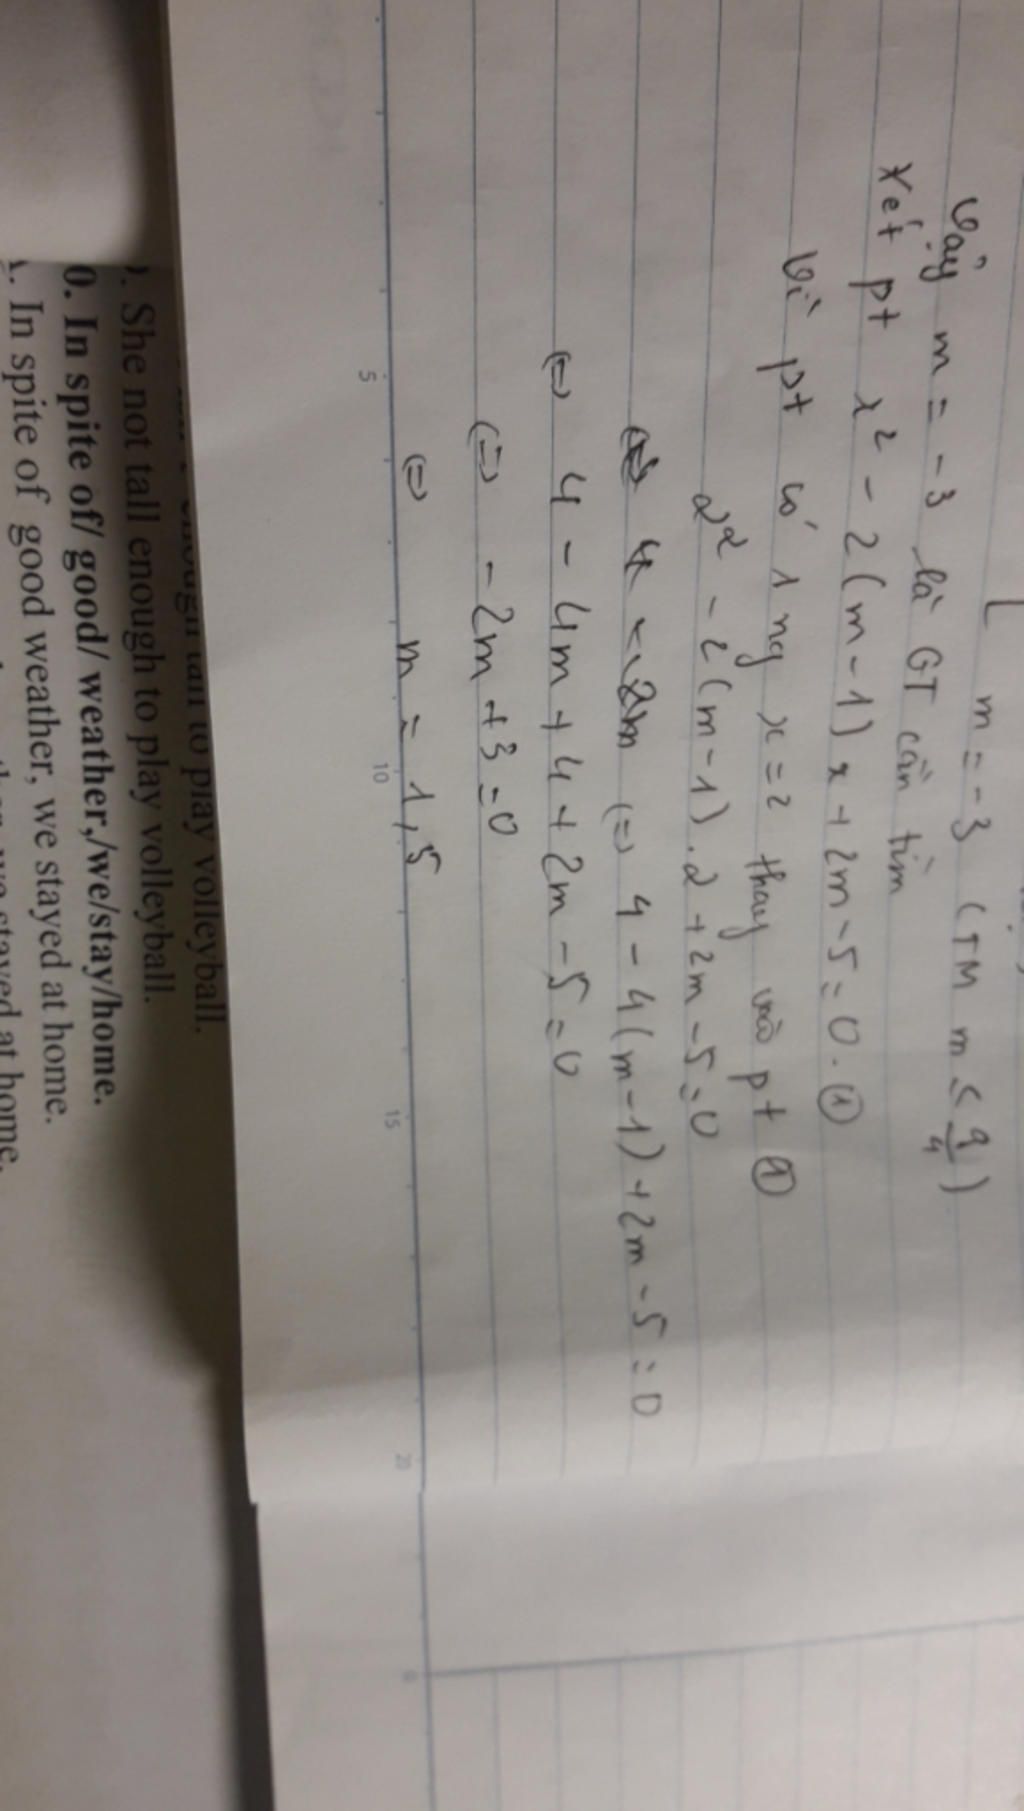 m = -3 (TM m < 9/4)
Vậy m = -3 là GT cần tìm
Xét pt x² - 2(m-1)x + 2m - 5 = 0. ①
Vì pt có 1 ng x = 2 thay vào pt ①
2² - 2(m-1).2 + 2m - 5 = 0
(=) 4 - 4(m-1) + 2m - 5 = 0
(=) 4 - 4m + 4 + 2m - 5 = 0
(=) -2m + 3 = 0
(=) m = 1,5
5 10 15 20 0
to play volleyball.
). She not tall enough to play volleyball.
0. In spite of/ good/ weather,/we/stay/home.
. In spite of good weather, we stayed at home.
we stayed at home.